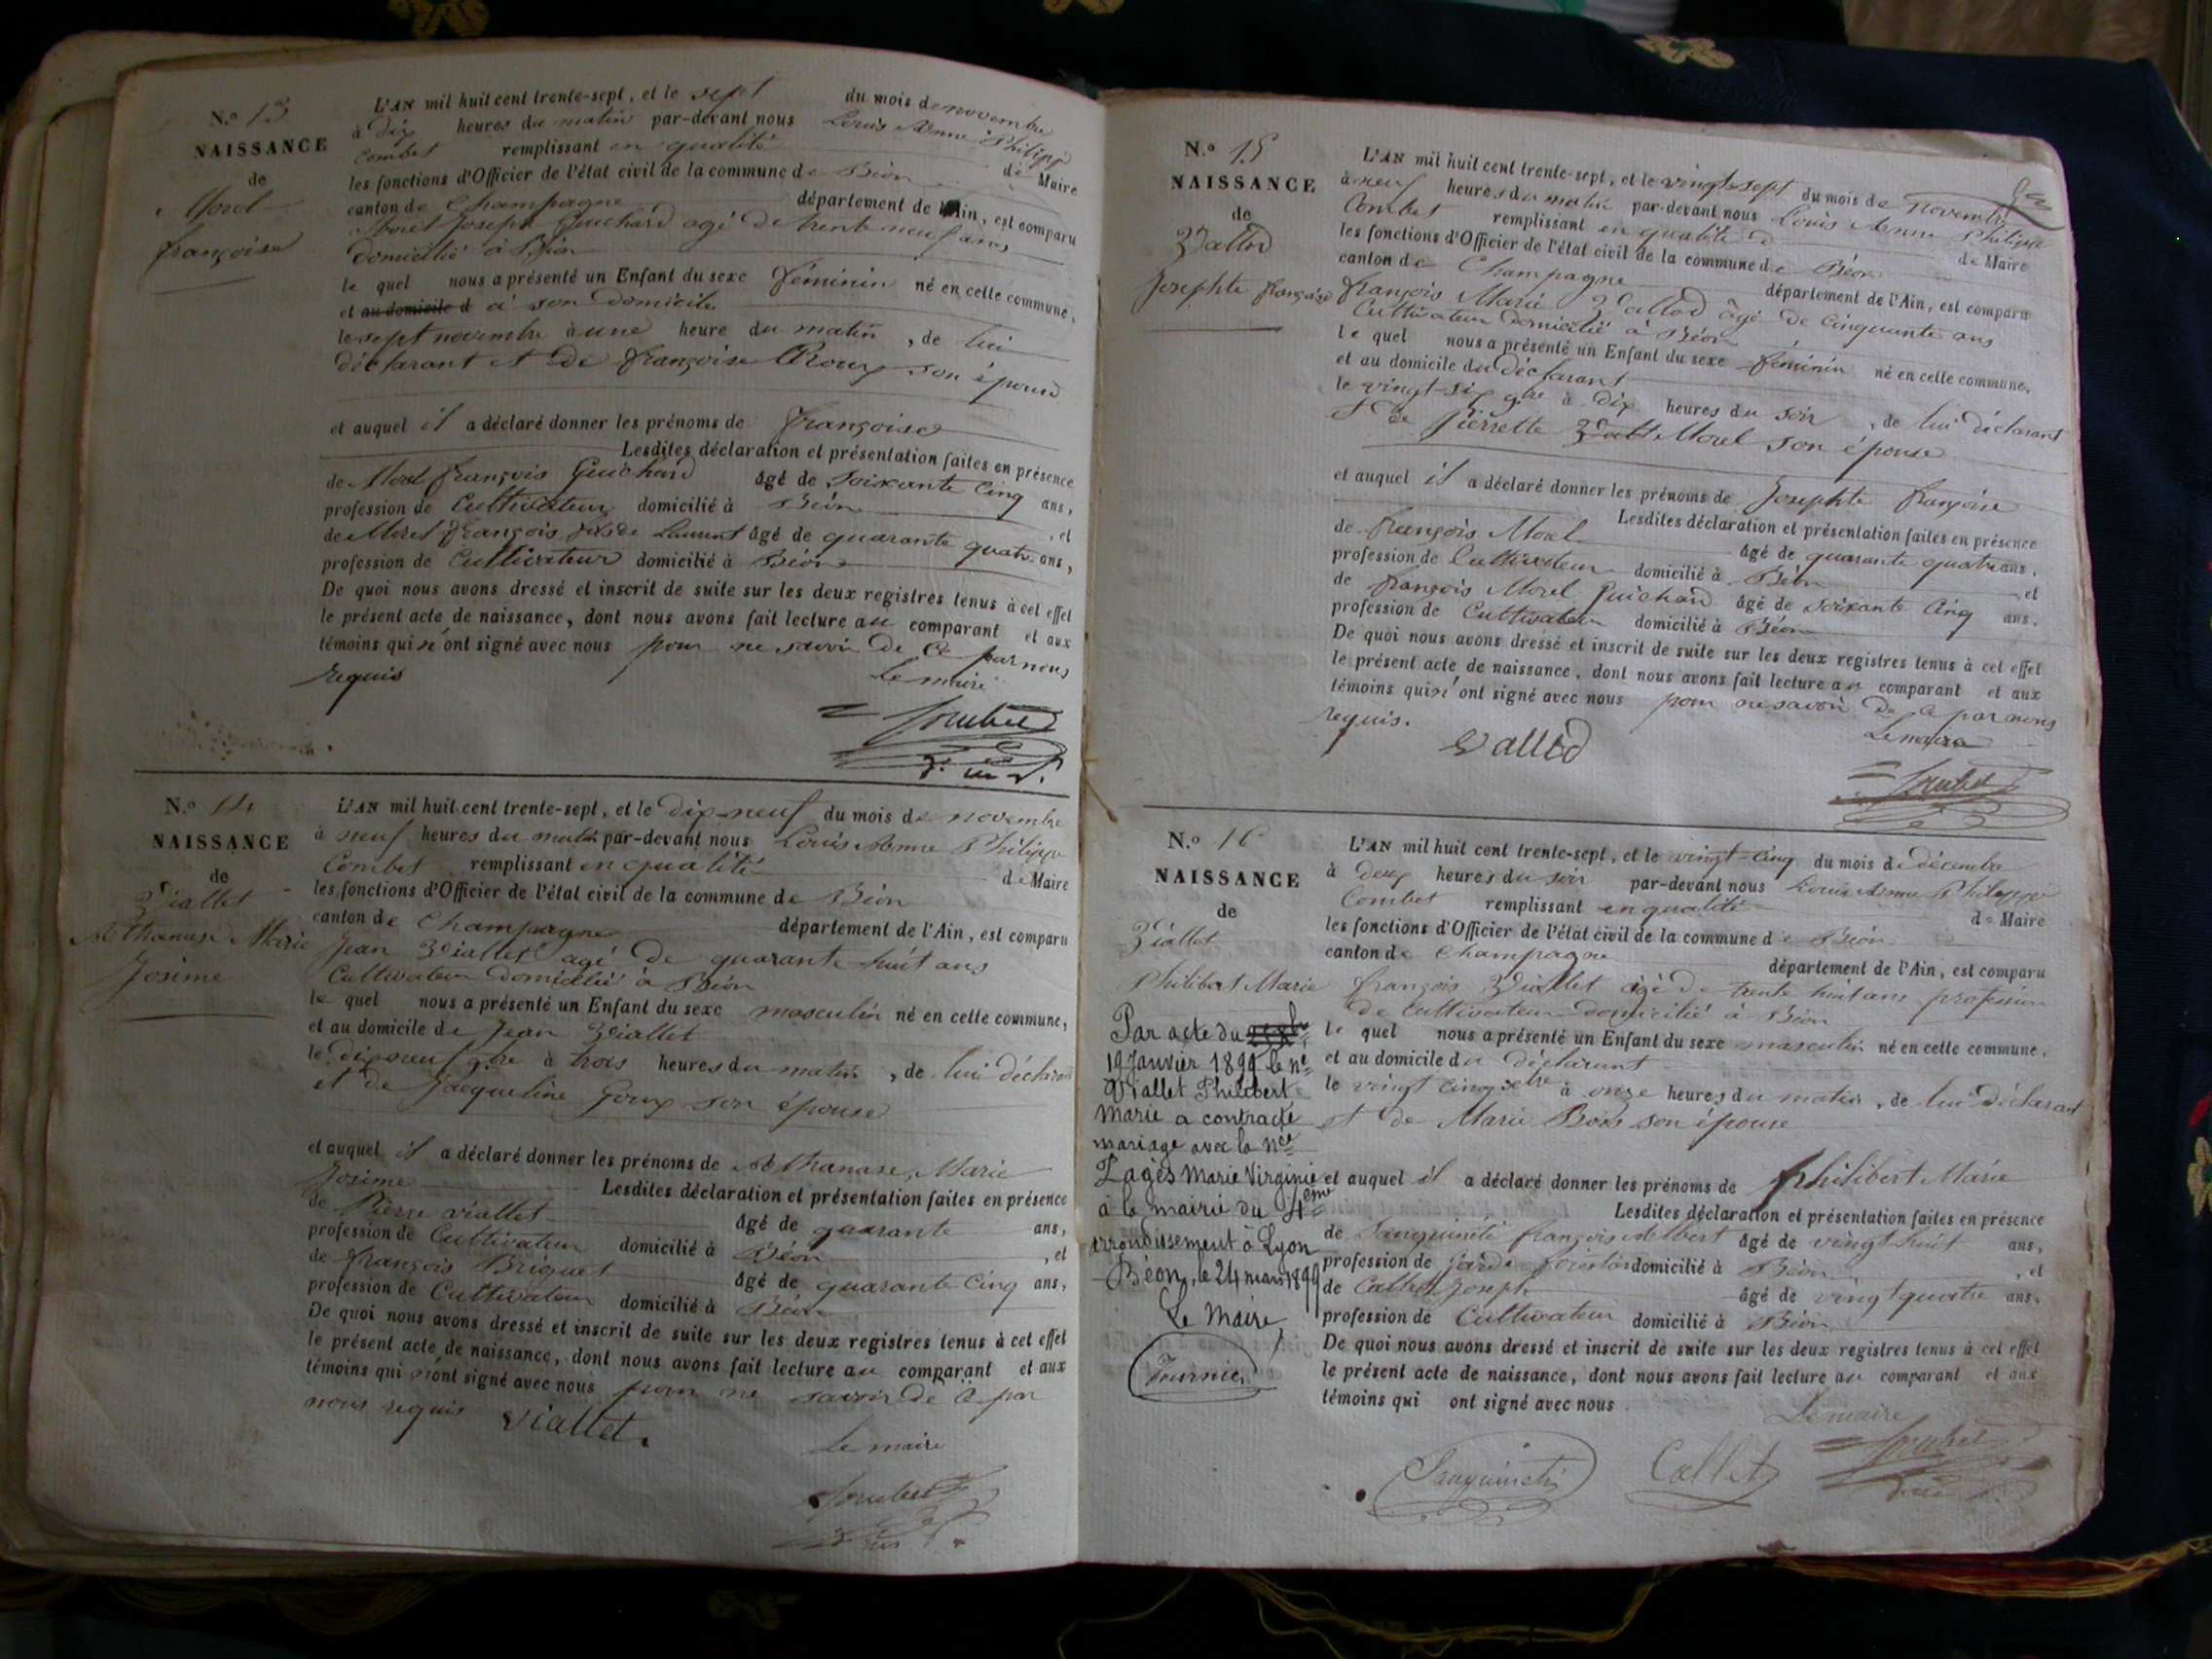 N.º 13
NAISSANCE
de
Morel
françoise
L'AN mil huit cent trente-sept, et le sept du mois de novembre
à dix heures du matin par-devant nous Louis Anne Philippe
Combet remplissant en qualité de Maire
les fonctions d'Officier de l'état civil de la commune de Béon
canton de Champagne département de l'Ain, est comparu
Morel Joseph Guichard agé de trente neuf ans
domicilié à Béon
le quel nous a présenté un Enfant du sexe féminin né en cette commune,
et au domicile d à son domicile
le sept novembre à une heure du matin, de lui
déclarant et de françoise Roux son épouse
et auquel il a déclaré donner les prénoms de françoise
Lesdites déclaration et présentation faites en présence
de Morel françois Guichard âgé de soixante cinq ans,
profession de Cultivateur domicilié à Béon, et
de Morel françois fils de Laurent âgé de quarante quatre ans,
profession de Cultivateur domicilié à Béon
De quoi nous avons dressé et inscrit de suite sur les deux registres tenus à cet effet
le présent acte de naissance, dont nous avons fait lecture au comparant et aux
témoins qui n'ont signé avec nous pour ne savoir de ce par nous
requis
le maire
N.º 14
NAISSANCE
de
Viallet
Athanase Marie
Josime
L'AN mil huit cent trente-sept, et le dix-neuf du mois de novembre
à neuf heures du matin par-devant nous Louis Anne Philippe
Combet remplissant en qualité de Maire
les fonctions d'Officier de l'état civil de la commune de Béon
canton de Champagne département de l'Ain, est comparu
Jean Viallet agé de quarante huit ans
Cultivateur domicilié à Béon
le quel nous a présenté un Enfant du sexe masculin né en cette commune,
et au domicile de Jean Viallet
le dix neuf 9bre à trois heures du matin, de lui déclarant
et de Jacqueline Goux son épouse
et auquel il a déclaré donner les prénoms de Athanase, Marie
Josime Lesdites déclaration et présentation faites en présence
de Pierre viallet âgé de quarante ans,
profession de Cultivateur domicilié à Béon, et
de françois Briquet âgé de quarante cinq ans,
profession de Cultivateur domicilié à Béon
De quoi nous avons dressé et inscrit de suite sur les deux registres tenus à cet effet
le présent acte de naissance, dont nous avons fait lecture au comparant et aux
témoins qui n'ont signé avec nous pour ne savoir de ce par
nous requis viallet
le maire
N.º 15
NAISSANCE
de
Vallod
Josephte françoise
L'AN mil huit cent trente-sept, et le vingt-sept du mois de novembre
à neuf heures du matin par-devant nous Louis Anne Philippe
Combet remplissant en qualité de Maire
les fonctions d'Officier de l'état civil de la commune de Béon
canton de Champagne département de l'Ain, est comparu
françois Marie Vallod âgé de cinquante ans
Cultivateur domicilié à Béon
le quel nous a présenté un Enfant du sexe féminin né en cette commune,
et au domicile du déclarant
le vingt-six 9bre à dix heures du soir, de lui déclarant
et de Pierrette Vall Morel son épouse
et auquel il a déclaré donner les prénoms de Josephte françoise
Lesdites déclaration et présentation faites en présence
de françois Morel âgé de quarante quatre ans,
profession de Cultivateur domicilié à Béon, et
de françois Morel Guichard âgé de soixante cinq ans.
profession de Cultivateur domicilié à Béon
De quoi nous avons dressé et inscrit de suite sur les deux registres tenus à cet effet
le présent acte de naissance, dont nous avons fait lecture au comparant et aux
témoins qui n'ont signé avec nous pour ne savoir de ce par nous
requis.
Le maire
vallod
N.º 16
NAISSANCE
de
Viallet
Philibert Marie
Par acte du
19 Janvier 1899 le né
Viallet Philibert
Marie a contracté
mariage avec la née
Lagès Marie Virginie
à la mairie du 4ème
arrondissement à Lyon
Béon, le 24 mars 1899
Le Maire,
Fournier
L'AN mil huit cent trente-sept, et le vingt-cinq du mois de décembre
à deux heures du soir par-devant nous Louis Anne Philippe
Combet remplissant en qualité de Maire
les fonctions d'Officier de l'état civil de la commune de Béon
canton de Champagne département de l'Ain, est comparu
françois Viallet âgé de trente huit ans profession
de cultivateur domicilié à Béon
le quel nous a présenté un Enfant du sexe masculin né en cette commune.
et au domicile du déclarant
le vingt cinq xbre à onze heures du matin, de lui déclarant
et de Marie Bois son épouse
et auquel il a déclaré donner les prénoms de philibert Marie
Lesdites déclaration et présentation faites en présence
de Sanguineti françois Albert âgé de vingt huit ans,
profession de garde forestier domicilié à Béon, et
de Callet Joseph âgé de vingt quatre ans.
profession de Cultivateur domicilié à Béon
De quoi nous avons dressé et inscrit de suite sur les deux registres tenus à cet effet
le présent acte de naissance, dont nous avons fait lecture au comparant et aux
témoins qui ont signé avec nous
Le maire
Sanguineti Callet